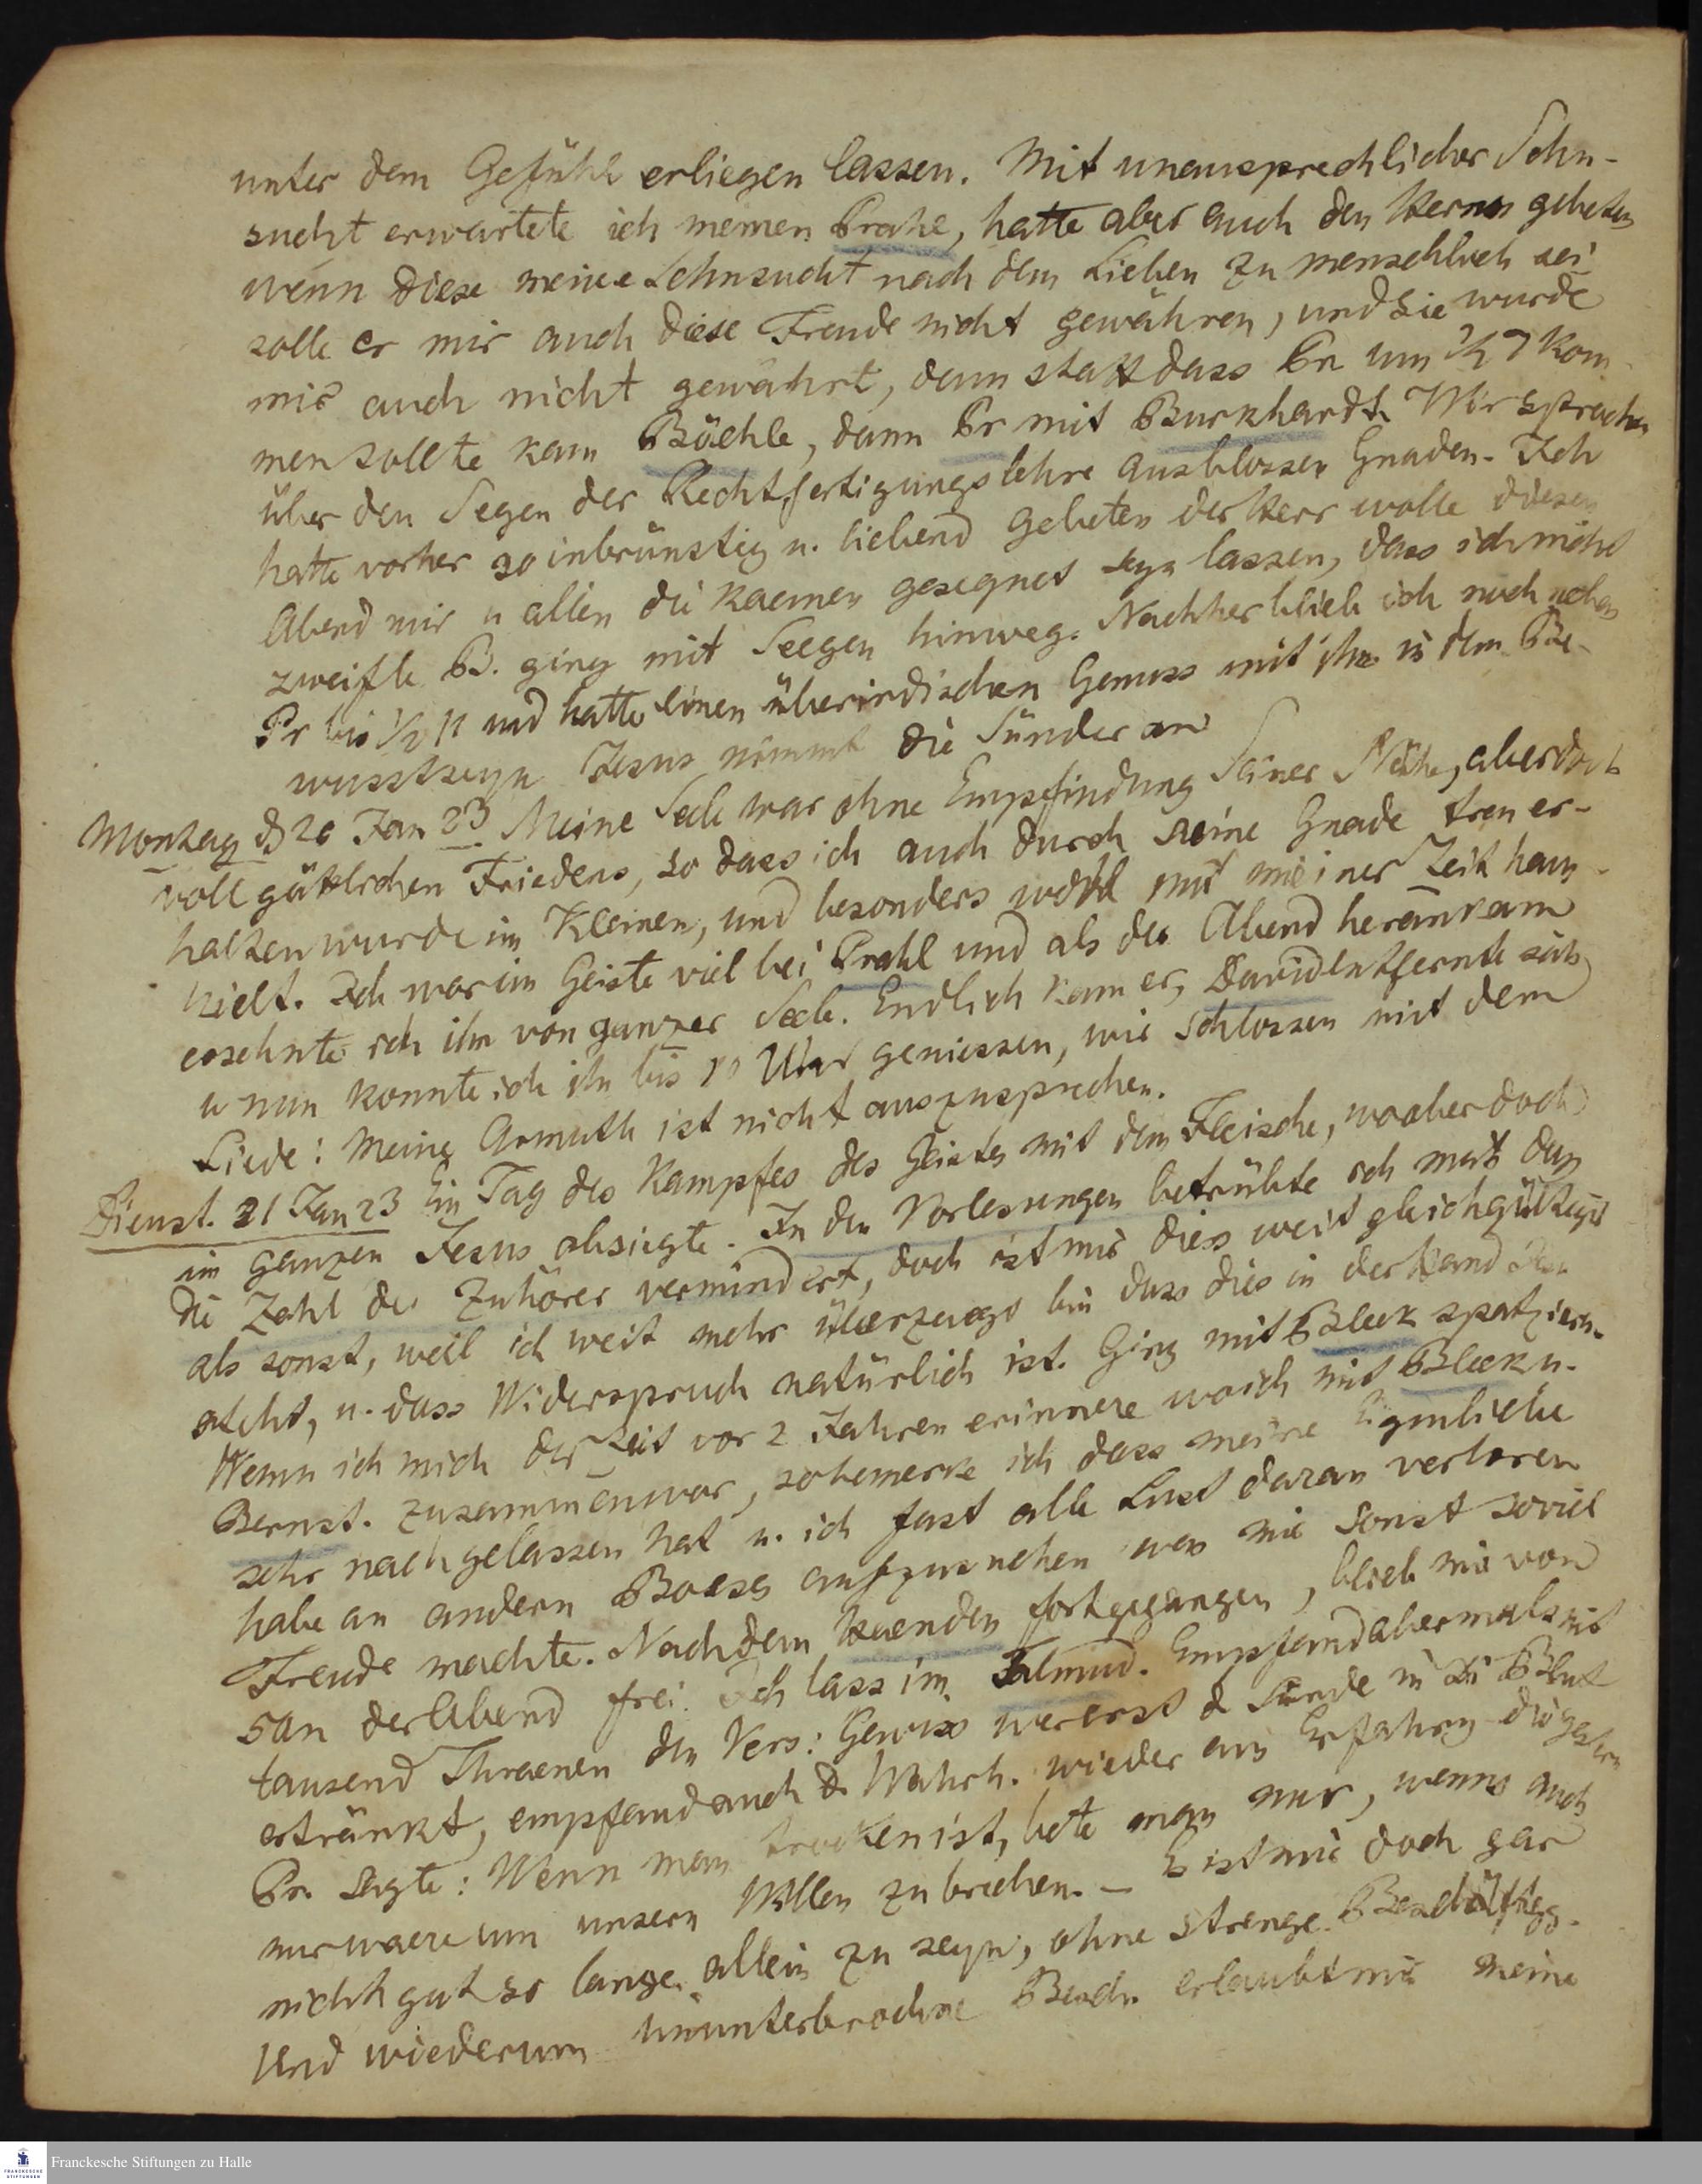 unter dem Gefühle erliegen lassen. Mit unaussprechlicher Sehn-
sucht erwartete ich meinen Prahl, hatte aber auch den Herrn gebeten
wenn diese meine Sehnsucht nach dem Lieben zu menschlich sei
solle er mir auch diese Freude nicht gewähren, und sie wurde
mir auch nicht gewährt, denn statt dass Pr um ½ 7 kom-
men sollte kam Böehle, dann Pr mit Burkhardt. Wir sprachen
über den Segen der Rechtfertigungslehre aus blosser Gnaden. Ich
hatte vorher so inbrünstig u. liebend gebeten der Herr wolle diesen
Abend mir u allen die kaemen gesegnet seyn lassen, dass ich nicht
zweifle B. ging mit Seegen hinweg. Nachher blieb ich noch neben
Pr bis ½ 11 und hatte einen überirdischen Genuss mit ihm in dem Be-
wusstseyn Jesus nimmt die Sünder an
Montag d 20 Jan 23 Meine Seele war ohne Empfindung Seiner Nähe, aber doch
voll göttlichen Friedens, so dass ich auch durch seine Gnade treu er-
halten wurde im Kleinen, und besonders wohl mit meiner Zeit haus-
hielt. Ich war im Geiste viel bei Prahl und als der Abend herankam
ersehnte ich ihn von ganzer Seele. Endlich kam er, David entfernte sich
u nun konnte ich ihn bis 10 Uhr geniessen, wir schlossen mit dem
Liede: Meine Armuth ist nicht auszusprechen.
Dienst. 21 Jan 23 Ein Tag des Kampfes des Geistes mit dem Fleische, wo aber doch
im ganzen Jesus obsiegte. In den Vorlesungen betrübte ich mich dass
die Zahl der Zuhörer vermindert, doch ist mir dies weit gleichgültiger
als sonst, weil ich weit mehr überzeugt bin dass dies in der Hand des
steht, u. dass Widerspruch natürlich ist. Ging mit Bleek spatzieren.
Wenn ich mich der Zeit vor 2 Jahren erinnere wo ich mit Bleek u.
Bernst. zusammen war, so bemerke ich dass meine Eigenliebe
sehr nachgelassen hat u. ich fast alle Lust daran verloren
habe an andern Boeses aufzusuchen was mir sonst soviel
Freude machte. Nachdem Haenden fortgegangen, blieb mir von
5 an der Abend frei. Ich lass im Talmud. Empfand abermals mit
tausend Thraenen den Vers: Gewiss wer erst d Sünde in Xi Blut
ertränkt, empfand auch d. Wahrh. wieder aus Erfahrng die gestern
Pr. sagte: Wenn man trocken ist, bete man nur, wenns auch
nur waere um unsern Willen zu brechen. — Es ist mir doch gar
nicht gut so lange allein zu seyn, ohne strenge Beschäftigg.
Und wiederum ununterbrochne Besch. erlaubt mir meine
Franckesche Stiftungen zu Halle